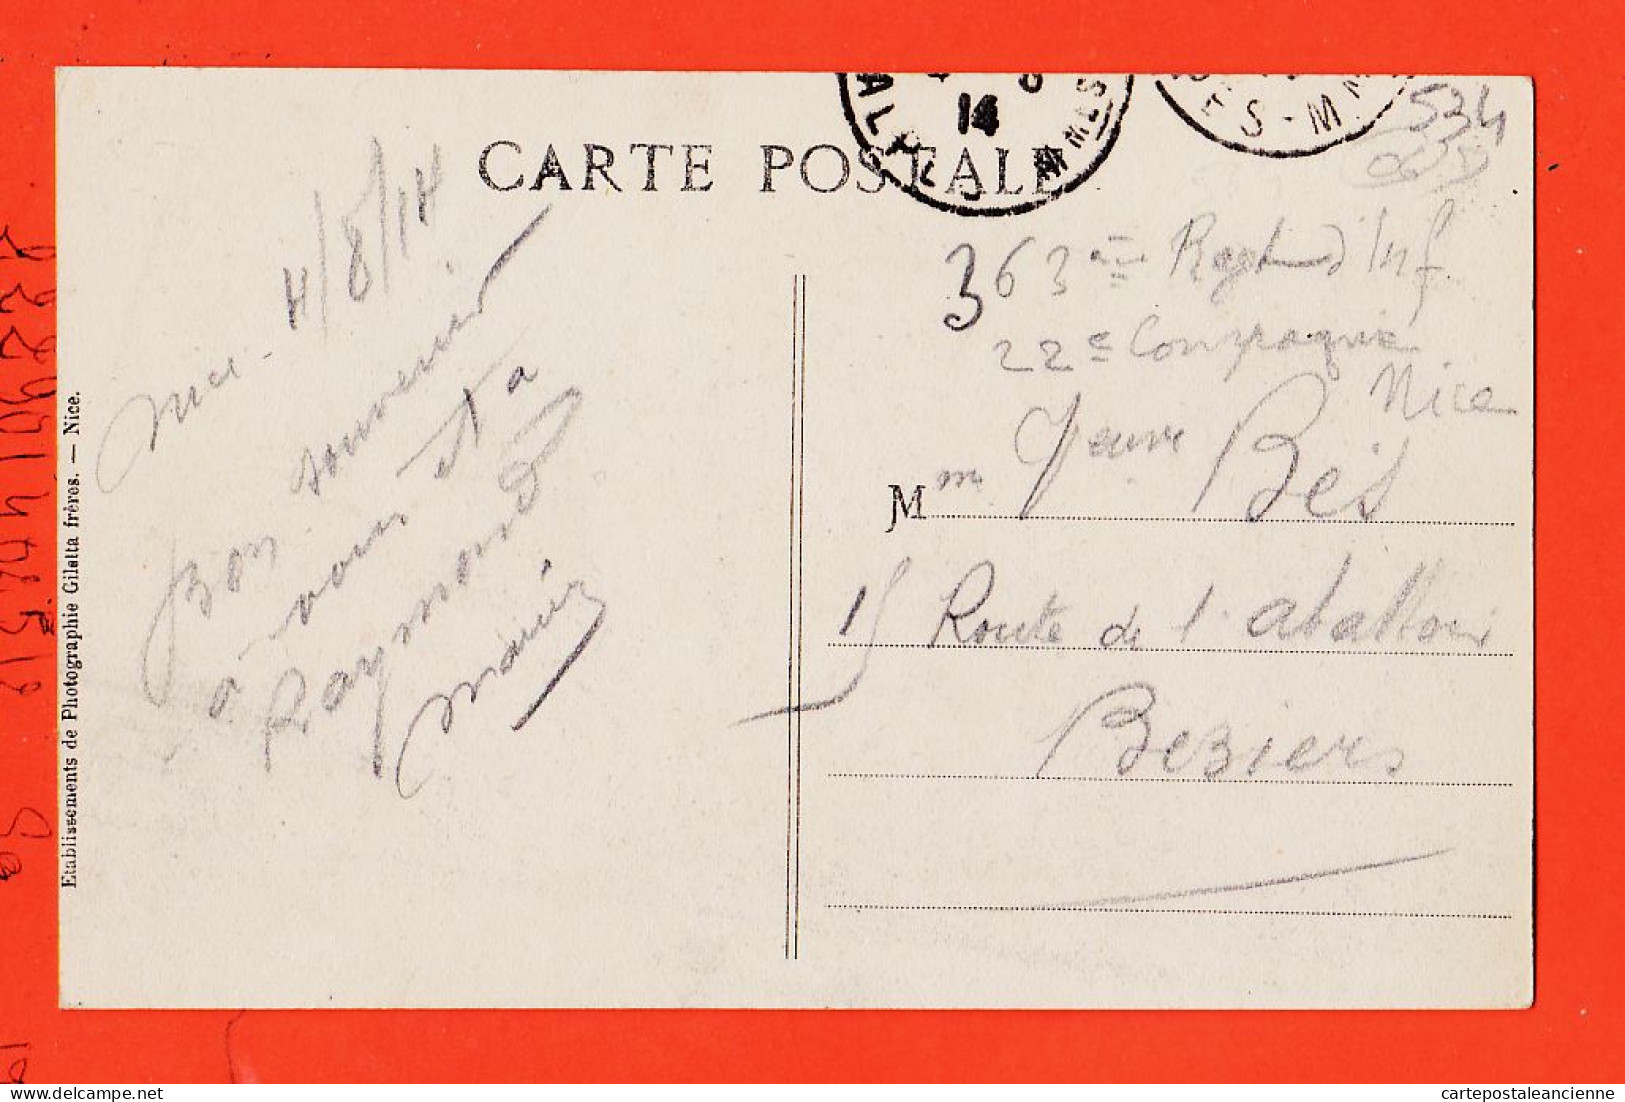 CARTE POSTALE
ALPES MMES
14
S-MM
534
Nice - 4/8/14
Bon souvenir
à vous et a
Raymond
Marius
363ème Regt d'Inf
22e Compagnie
Nice
Mme Veuve Bés
15 Route de l'abattoir
Beziers
Etablissements de Photographie Giletta frères. — Nice.
cartepostaleancienne